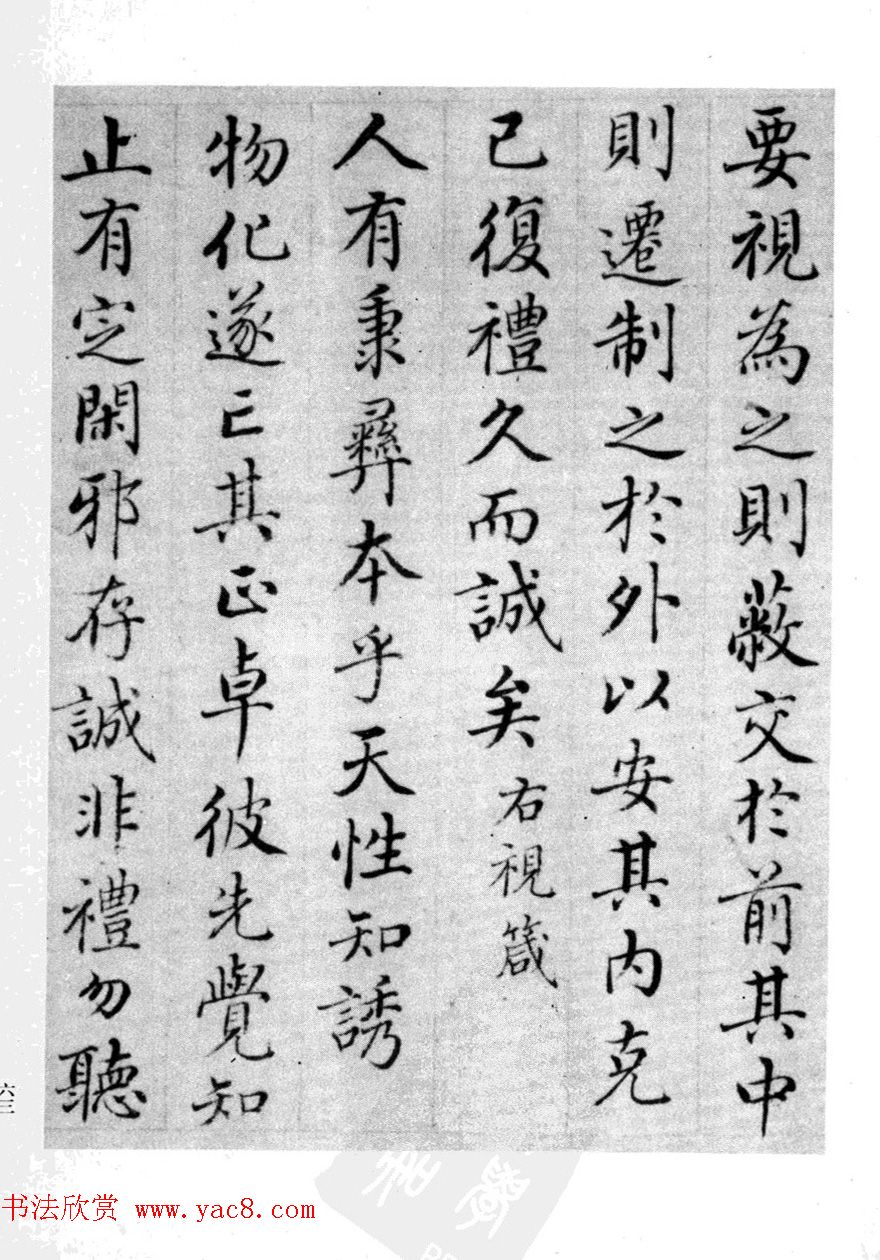 要視為之則蔽交於前其中
則遷制之於外以安其內克
己復禮久而誠矣右視箴
人有秉彝本乎天性知誘
物化遂亡其正卓彼先覺知
止有定閑邪存誠非禮勿聽
六三
书法欣赏 www.yac8.com